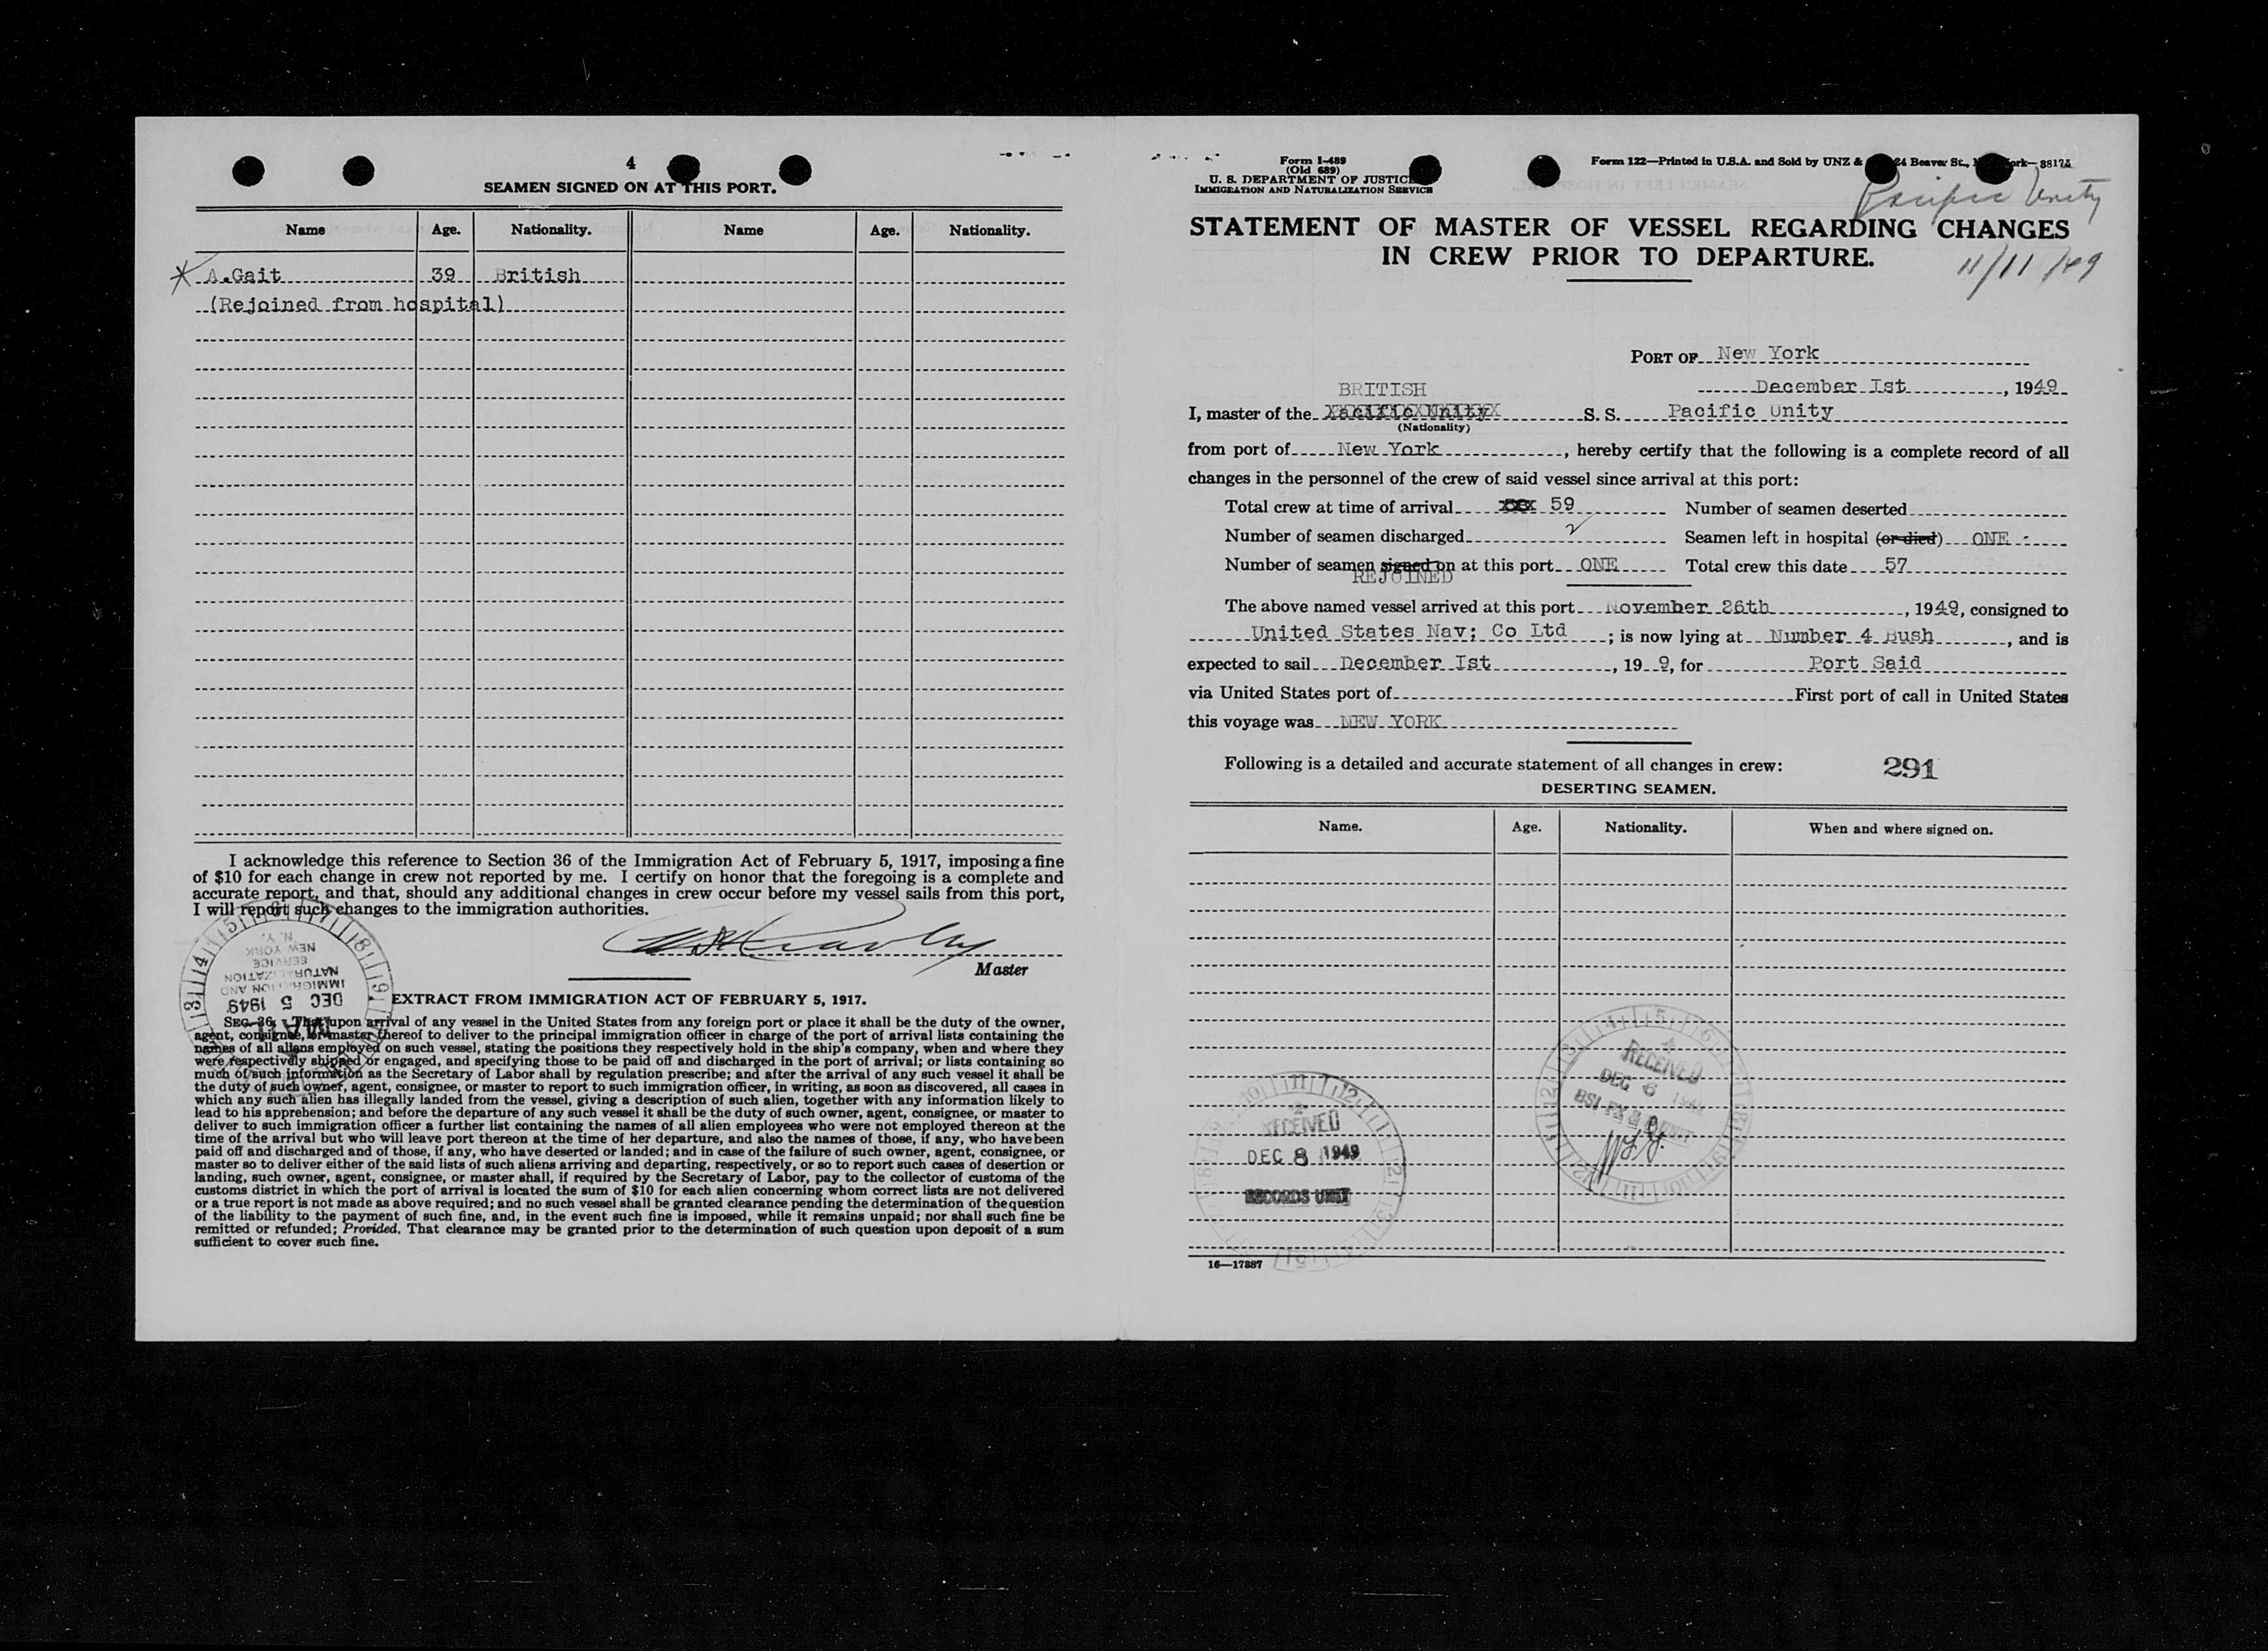 4
SEAMEN SIGNED ON AT THIS PORT.
Name Age. Nationality. Name Age. Nationality.
A.Gait 39 British
(Rejoined from hospital)
I acknowledge this reference to Section 36 of the Immigration Act of February 5, 1917, imposing a fine
of $10 for each change in crew not reported by me. I certify on honor that the foregoing is a complete and
accurate report, and that, should any additional changes in crew occur before my vessel sails from this port,
I will report such changes to the immigration authorities.
Master
N. Y.
NEW YORK
SERVICE
NATURALIZATION
IMMIGRATION AND
DEC 5 1949
EXTRACT FROM IMMIGRATION ACT OF FEBRUARY 5, 1917.
SEC. 36. That upon arrival of any vessel in the United States from any foreign port or place it shall be the duty of the owner,
agent, consignee, or master thereof to deliver to the principal immigration officer in charge of the port of arrival lists containing the
names of all aliens employed on such vessel, stating the positions they respectively hold in the ship's company, when and where they
were respectively shipped or engaged, and specifying those to be paid off and discharged in the port of arrival; or lists containing so
much of such information as the Secretary of Labor shall by regulation prescribe; and after the arrival of any such vessel it shall be
the duty of such owner, agent, consignee, or master to report to such immigration officer, in writing, as soon as discovered, all cases in
which any such alien has illegally landed from the vessel, giving a description of such alien, together with any information likely to
lead to his apprehension; and before the departure of any such vessel it shall be the duty of such owner, agent, consignee, or master to
deliver to such immigration officer a further list containing the names of all alien employees who were not employed thereon at the
time of the arrival but who will leave port thereon at the time of her departure, and also the names of those, if any, who have been
paid off and discharged and of those, if any, who have deserted or landed; and in case of the failure of such owner, agent, consignee, or
master so to deliver either of the said lists of such aliens arriving and departing, respectively, or so to report such cases of desertion or
landing, such owner, agent, consignee, or master shall, if required by the Secretary of Labor, pay to the collector of customs of the
customs district in which the port of arrival is located the sum of $10 for each alien concerning whom correct lists are not delivered
or a true report is not made as above required; and no such vessel shall be granted clearance pending the determination of the question
of the liability to the payment of such fine, and, in the event such fine is imposed, while it remains unpaid; nor shall such fine be
remitted or refunded; Provided, That clearance may be granted prior to the determination of such question upon deposit of a sum
sufficient to cover such fine.
Form I-489
(Old 689)
U. S. DEPARTMENT OF JUSTICE
IMMIGRATION AND NATURALIZATION SERVICE
Form 122—Printed in U.S.A. and Sold by UNZ & 24 Beaver St., York—38175
Pacific Unity
11/11/49
STATEMENT OF MASTER OF VESSEL REGARDING CHANGES
IN CREW PRIOR TO DEPARTURE.
PORT OF New York
December Ist, 1949
BRITISH
I, master of the Pacific Unity S. S. Pacific Unity
(Nationality)
from port of New York, hereby certify that the following is a complete record of all
changes in the personnel of the crew of said vessel since arrival at this port:
Total crew at time of arrival 59 Number of seamen deserted
Number of seamen discharged 2 Seamen left in hospital (or died) ONE -
Number of seamen signed on at this port ONE Total crew this date 57
REJOINED
The above named vessel arrived at this port November 26th, 1949, consigned to
United States Nav: Co Ltd; is now lying at Number 4 Bush, and is
expected to sail December Ist, 19 9, for Port Said
via United States port of First port of call in United States
this voyage was NEW YORK
Following is a detailed and accurate statement of all changes in crew: 291
DESERTING SEAMEN.
Name. Age. Nationality. When and where signed on.
RECEIVED
DEC 6 1949
RECEIVED
DEC 8 1949
RECORDS UNIT
16—17887